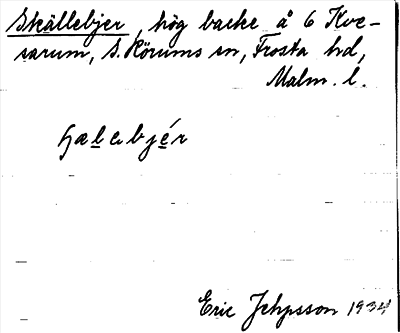 Skällebjer, hög backe å 6 Kve-
sarum, S. Rörums sn, Frosta hd,
Malm. l.
Eric Jehpsson 1934